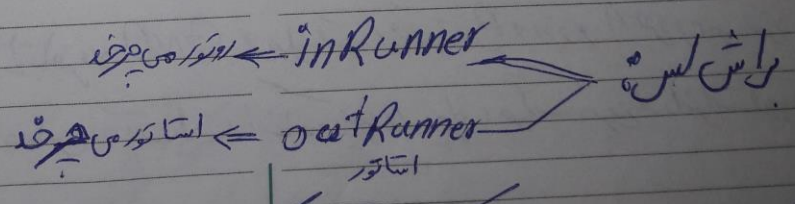 براش لس:
inRunner ← روتور می چرخد
outRunner ⇐ استاتور می چرخد
استاتور